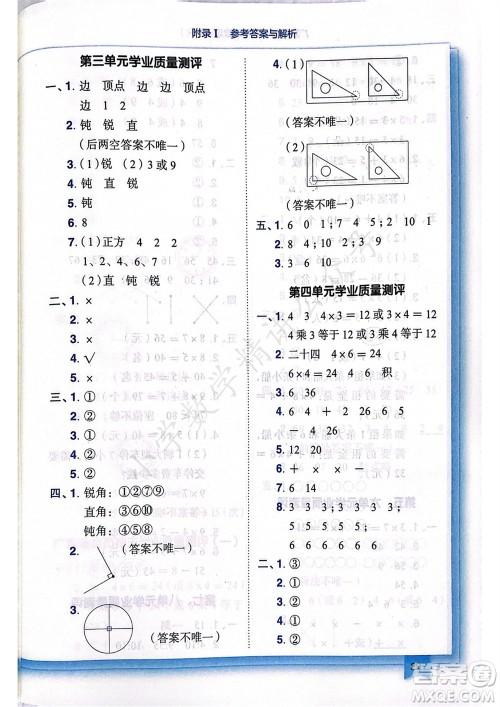 附录Ⅰ 参考答案与解析
第三单元学业质量测评
一、1. 边 顶点 边 边 顶点
边 1 2
2. 钝 锐 直
(后两空答案不唯一)
3. (1)锐 (2)3或9
4. 钝 直 锐
5. ②
6. 8
7. (1)正方 4 2 2
1、2、4、6、7
(2)直 钝 锐
二、1. ×
2. ×
3. ×
4. √
5. ×
三、1. ①
2. ①
3. ①
4. ②
5. ②
四、1. 锐角:①②⑦⑨
直角:③⑥⑩
钝角:④⑤⑧
2. (答案不唯一)
3. (答案不唯一)
4. (1)
(答案不唯一)
(2)
(答案不唯一)
五、1. 6 0 1;7 5 2 10 1
2. 8 4;4 2;2 1
3. 6 10
第四单元学业质量测评
一、1. 4 3 4×3=12或3×4=12
4乘3等于12或3乘4等于12
2. 二十四 4×6=24
6×4=24 6 4 积
3. 15 24 30 20
4. > + 2 6 6 6
5. 12 4 1 2 3
6. 27 36
7. 6 14 30
8. 3 3 3 3 3;3 5;
5 5 5;5 3
二、1. ③
2. ①③③③③③
3. ①
4. ①
5. ②